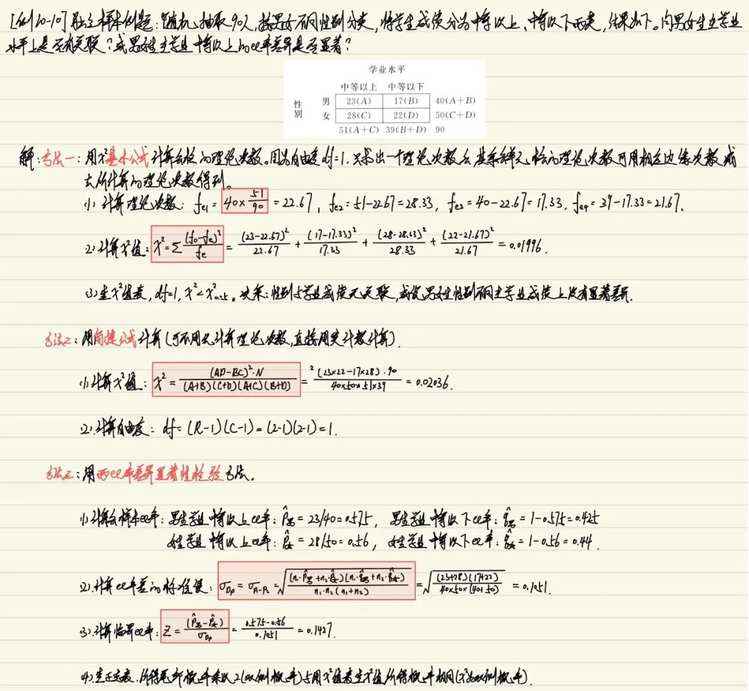 [例10-10] 独立样本例题:随机抽取90人,按男女不同性别分类,将学生成绩分为中等以上、中等以下两类,结果如下。问男女生在学业
水平上是否有关联?或男女生在学业中等以上的比率差异是否显著?
学业水平
中等以上 中等以下
性别 男 23(A) 17(B) 40(A+B)
女 28(C) 22(D) 50(C+D)
51(A+C) 39(B+D) 90
解:方法一:用χ²基本公式计算各格的理论次数。因为自由度df=1.只求出一个理论次数后,其余各格的理论次数可用相应边缘次数减
去所计算的理论次数得到。
(1) 计算理论次数: fe1 = 40×51/90 = 22.67, fe2 = 51-22.67 = 28.33, fe3 = 40-22.67 = 17.33, fe4 = 39-17.33 = 21.67.
(2) 计算χ²值: χ² = Σ(fo-fe)²/fe = (23-22.67)²/22.67 + (17-17.33)²/17.33 + (28-28.33)²/28.33 + (22-21.67)²/21.67 = 0.01996.
(3) 查χ²值表, df=1, χ²<χ²0.05。决策:性别与学业成绩无关联,或说男女生性别不同在学业成绩上没有显著差异.
方法二:用简捷公式计算(可不用求计算理论次数,直接用实计数计算).
(1) 计算χ²值: χ² = (AD-BC)²·N/(A+B)(C+D)(A+C)(B+D) = ²(23×22-17×28)·90/40×50×51×39 = 0.02036.
(2) 计算自由度: df = (R-1)(C-1) = (2-1)(2-1) = 1.
方法三:用两比率差异显著性检验方法.
(1) 计算各样本比率:男生学业中等以上比率: p̂男 = 23/40 = 0.575, 男生学业中等以下比率: q̂男 = 1-0.575 = 0.425
女生学业中等以上比率: p̂女 = 28/50 = 0.56, 女生学业中等以下比率: q̂女 = 1-0.56 = 0.44.
(2) 计算比率差的标准误: σDp = σp1-p2 = √(n1p̂男+n2p̂女)(n1q̂男+n2q̂女)/n1·n2(n1+n2) = √(23+28)(17+22)/40×50×(40+50) = 0.1051.
(3) 计算临界比率: Z = (p̂男-p̂女)/σDp = 0.575-0.56/0.1051 = 0.1427.
(4) 查正态表,所得尾部概率乘以2(双侧概率)与用χ²值表查χ²值所得概率相同(χ²为双侧概率).